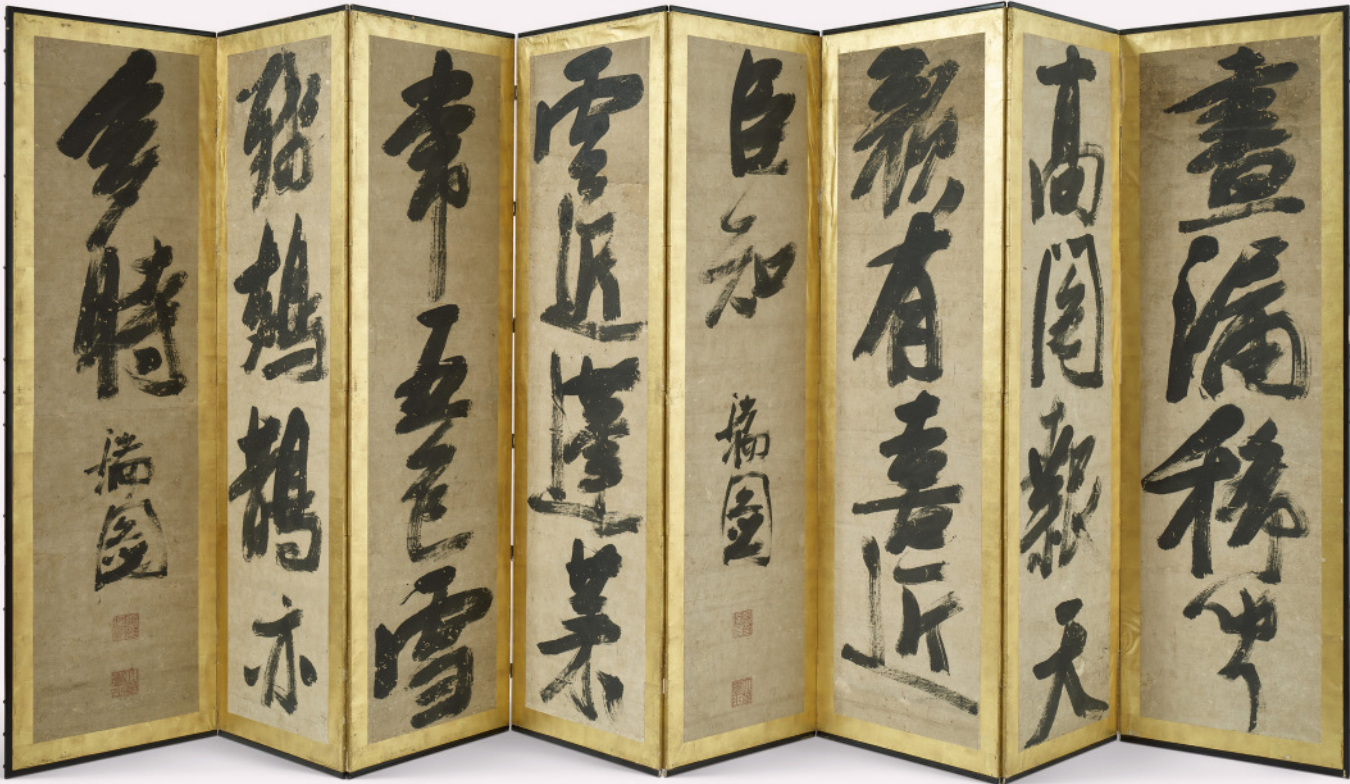 晝漏稀聞
高閣報天
顏有喜近
臣知
瑞圖
雲近蓬萊
常五色雪
殘鳷鵲亦
多時
瑞圖